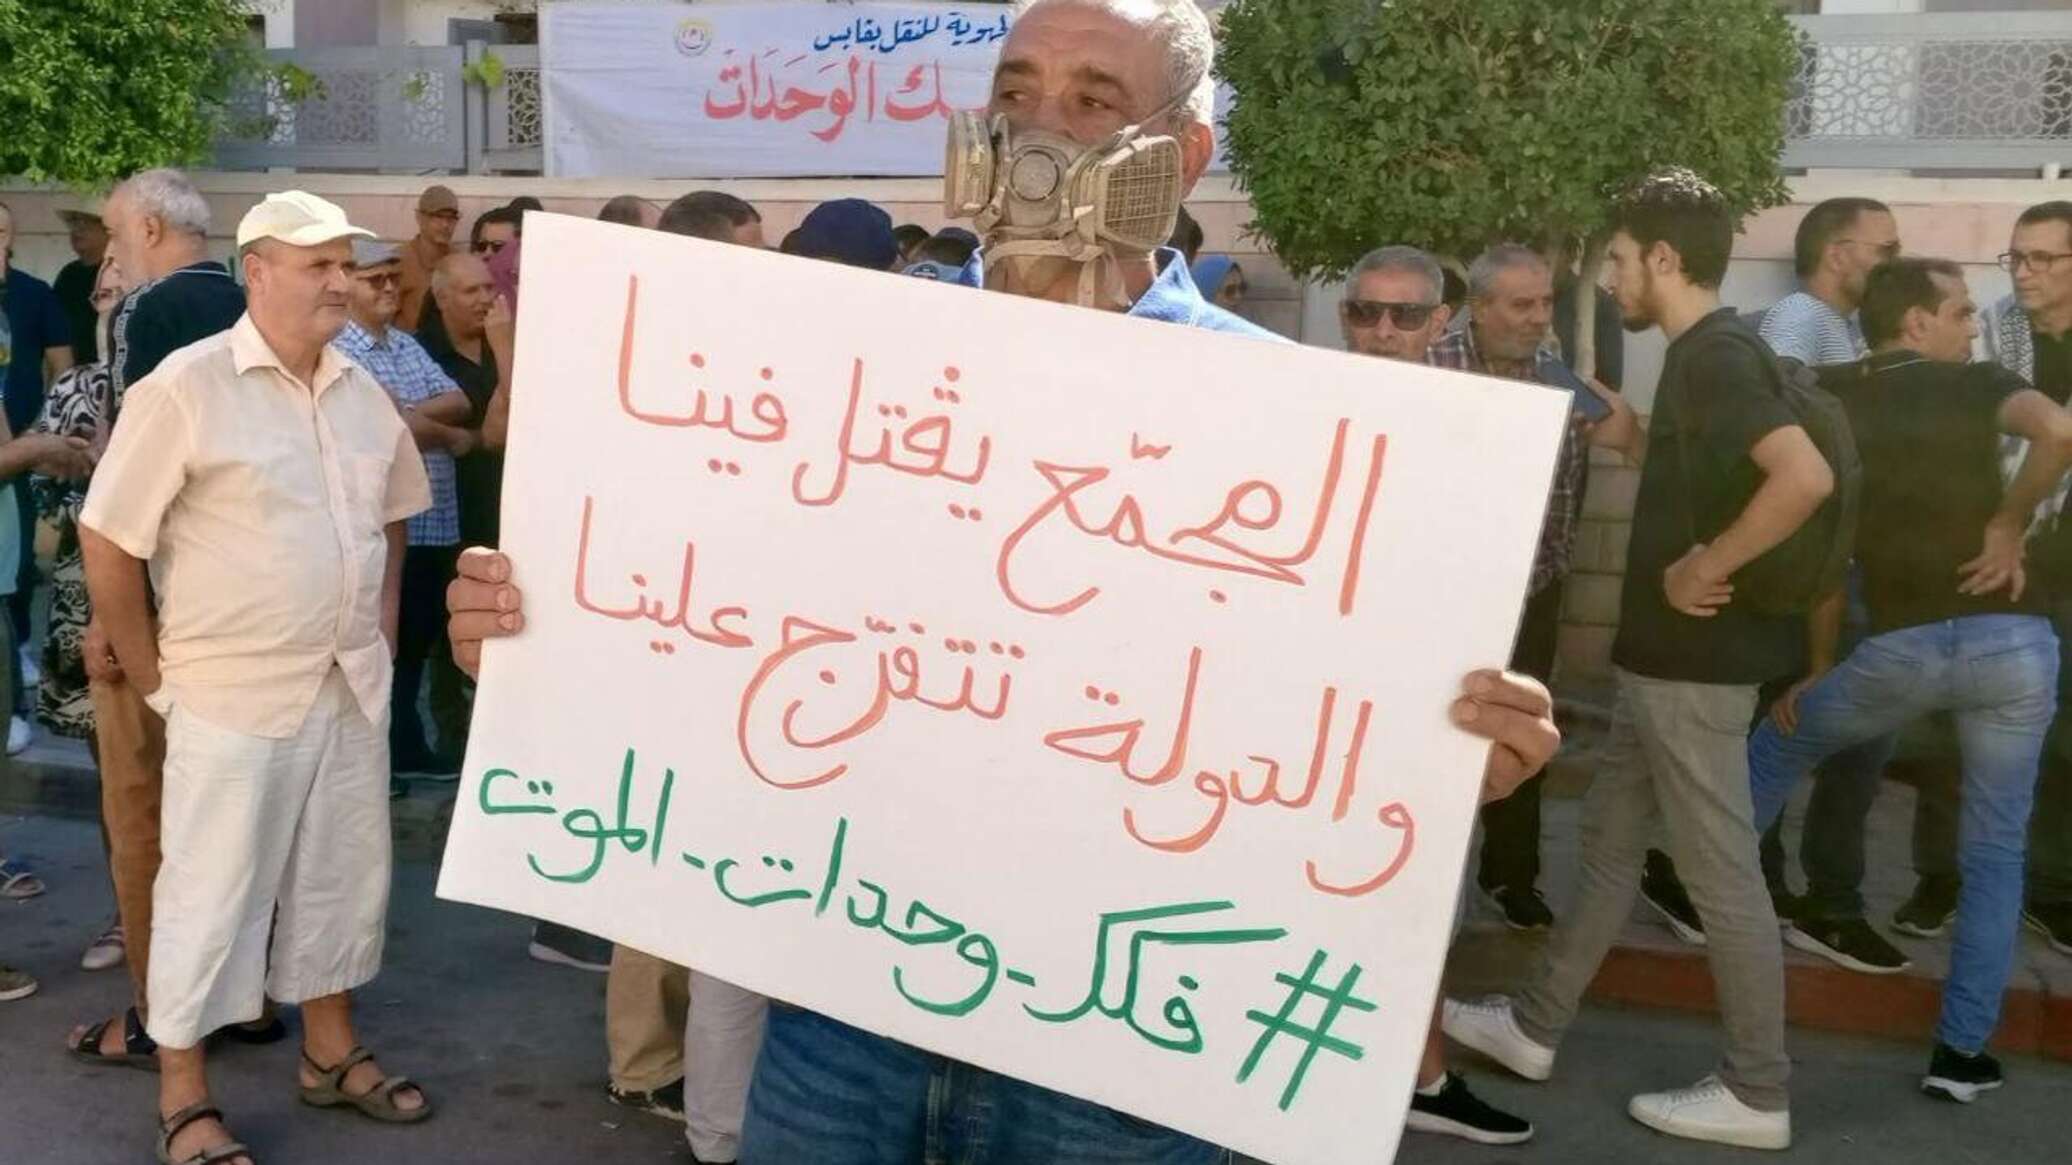 جهوية للنقل بقابس
ـك الوَحَدَات
المجمّع يڨتل فينا
والدولة تتفرّج علينا
#فكك-وحدات-الموت